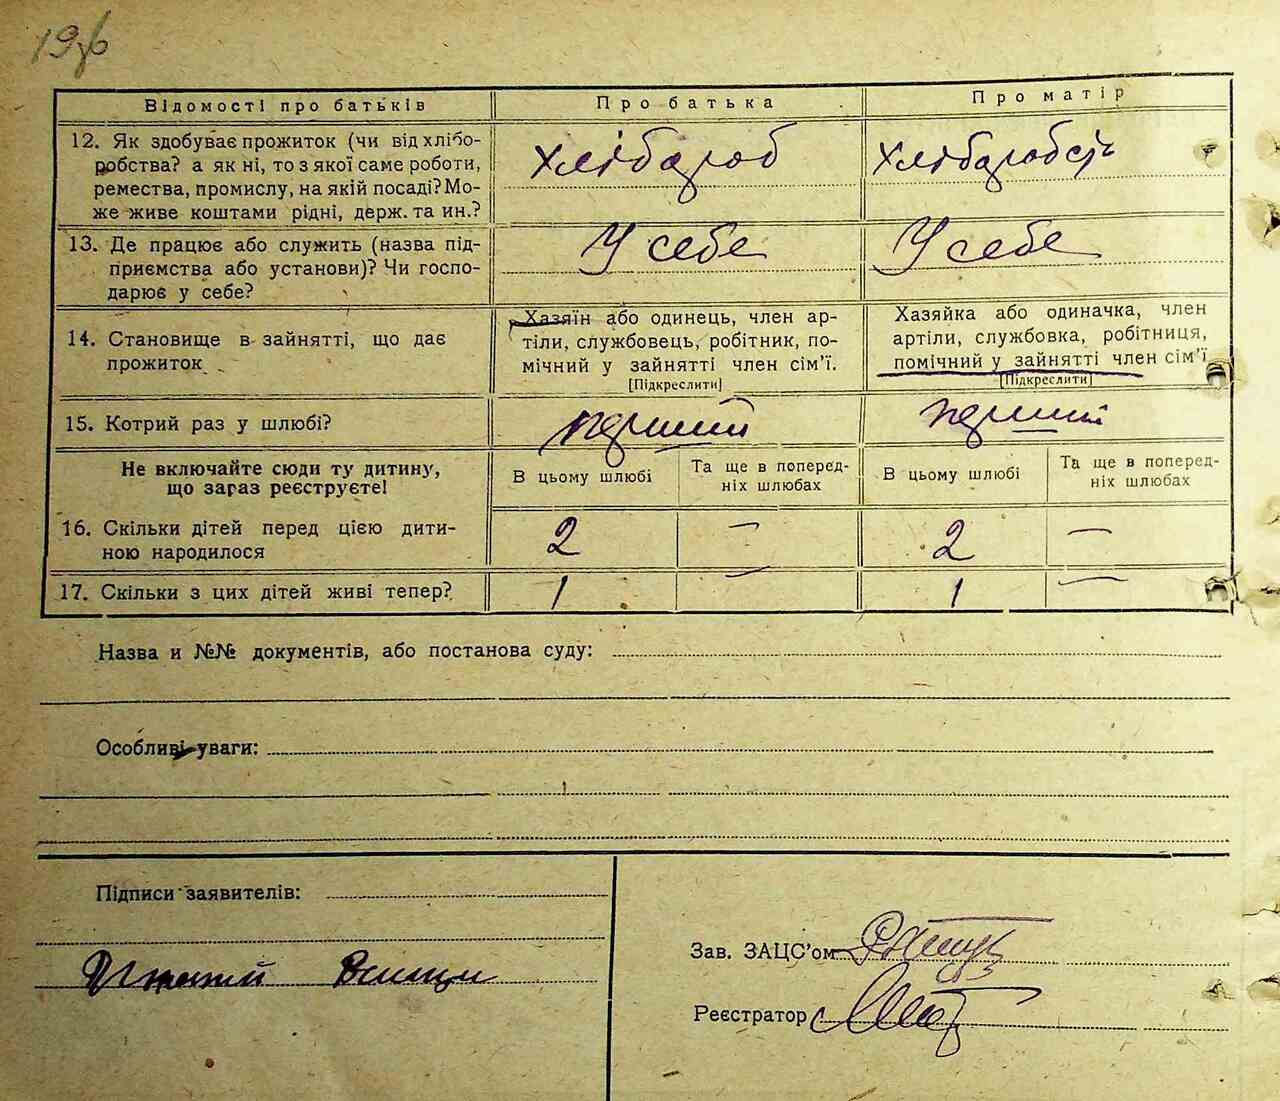 Відомості про батьків
Про батька
Про матір
12. Як здобуває прожиток (чи від хлібо-
робства? а як ні, то з якої саме роботи,
ремества, промислу, на якій посаді? Мо-
же живе коштами рідні, держ. та ин.?
Хлібороб
13. Де працює або служить (назва під-
приємства або установи)? Чи госпо-
дарює у себе?
У себе
У себе
14. Становище в зайнятті, що дає
прожиток
Хазяїн або одинець, член ар-
тіли, службовець, робітник, по-
мічний у зайнятті член сім'ї.
[Підкреслити]
Хазяйка або одиначка, член
артіли, службовка, робітниця,
помічний у зайнятті член сім'ї
[Підкреслити]
15. Котрий раз у шлюбі?
перший
перший
Не включайте сюди ту дитину,
що зараз реєструєте!
В цьому шлюбі
Та ще в поперед-
ніх шлюбах
В цьому шлюбі
Та ще в поперед-
ніх шлюбах
16. Скільки дітей перед цією дити-
ною народилося
2
—
2
—
17. Скільки з цих дітей живі тепер?
1
—
1
—
Назва и №№ документів, або постанова суду:
Особливі уваги:
Підписи заявителів:
Зав. ЗАЦС'ом
Реєстратор